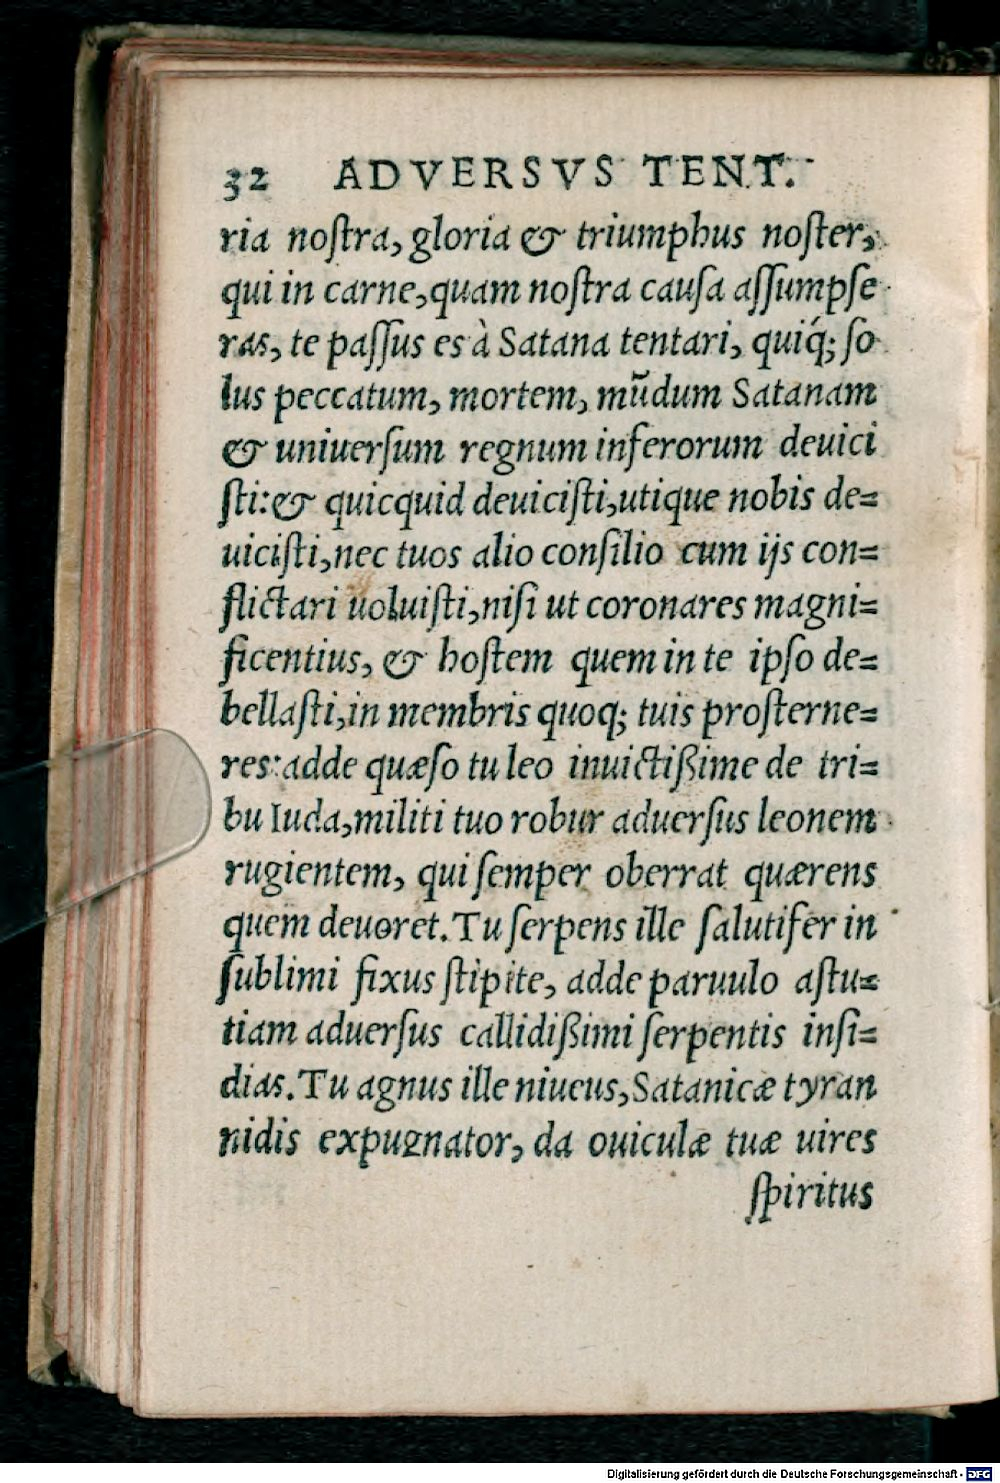 32 ADVERSVS TENT.
ria noſtra, gloria & triumphus noſter,
qui in carne, quam noſtra cauſa aſſumpſe
ras, te paſſus es à Satana tentari, quiq́; ſo
lus peccatum, mortem, mũdum Satanam
& uniuerſum regnum inferorum deuici
ſti: & quicquid deuiciſti, utique nobis de=
uiciſti, nec tuos alio conſilio cum ijs con=
flictari uoluiſti, niſi ut coronares magni=
ficentius, & hoſtem quem in te ipſo de=
bellaſti, in membris quoq; tuis proſterne=
res: adde quæſo tu leo inuictißime de tri=
bu Iuda, militi tuo robur aduerſus leonem
rugientem, qui ſemper oberrat quærens
quem deuoret. Tu ſerpens ille ſalutifer in
ſublimi fixus ſtipite, adde paruulo aſtu=
tiam aduerſus callidißimi ſerpentis inſi=
dias. Tu agnus ille niueus, Satanicæ tyran
nidis expugnator, da ouiculæ tuæ uires
ſpiritus
Digitalisierung gefördert durch die Deutsche Forschungsgemeinschaft - DFG